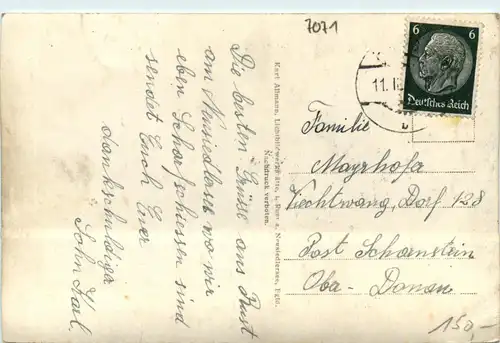 7071
Die besten Grüße aus Rust
am Neusiedlersee wo wir
eben Scharfschiessen sind
sendet Euch Euer
dankschuldiger
Sohn Karl.
Karl Allmann, Lichtbildwerkstätte,
Nachdruck verboten.
6 6
Deutsches Reich
11.
b
Familie
Mayrhofer
Viechtwang, Dorf 128
Post Scharnstein
Oba-Donau
150,-